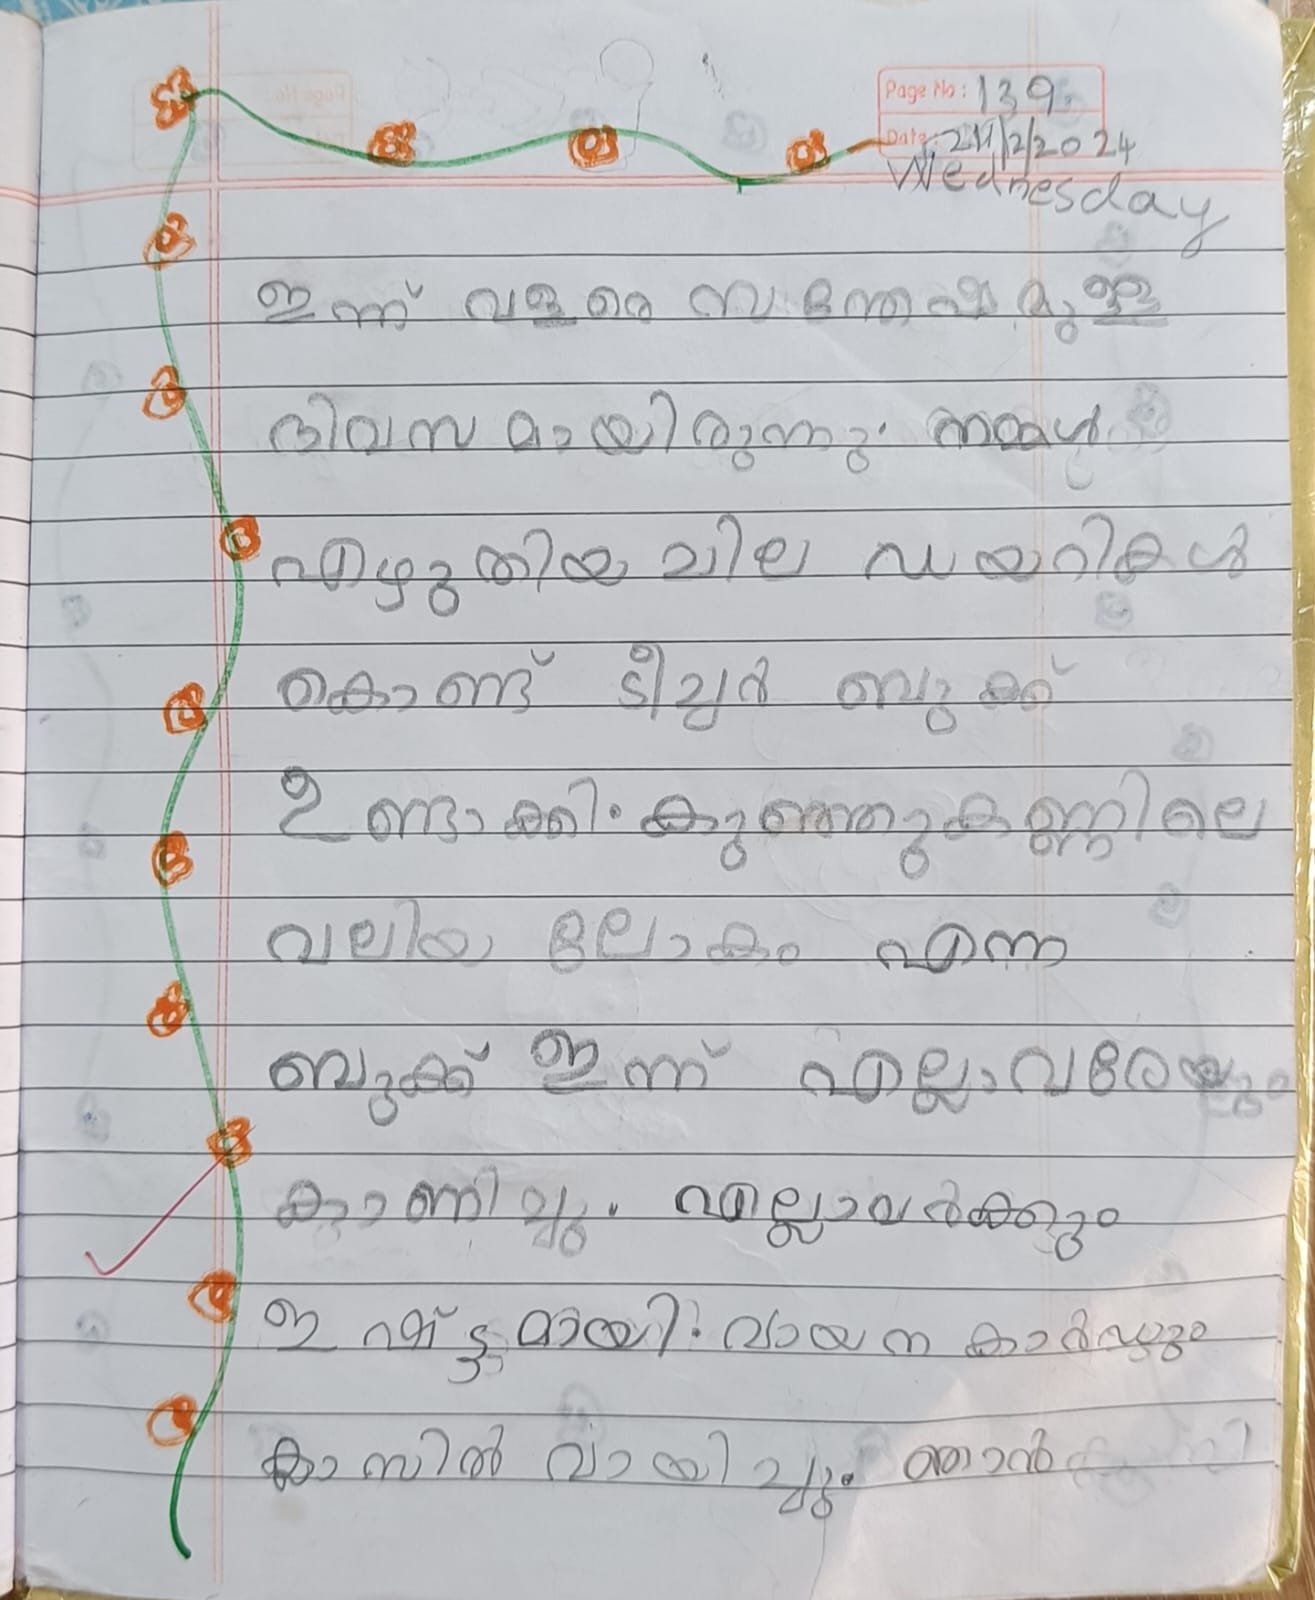 Page No: 139
Date: 21/2/2024
Wednesday
ഇന്ന് വളരെ സന്തോഷമുള്ള
ദിവസമായിരുന്നു. ഞങ്ങൾ
എഴുതിയ ചില ഡയറികൾ
കൊണ്ട് ടീച്ചർ ബുക്ക്
ഉണ്ടാക്കി. കുഞ്ഞുകണ്ണിലെ
വലിയ ലോകം എന്ന
ബുക്ക് ഇന്ന് എല്ലാവരേയും
കാണിച്ചു. എല്ലാവർക്കും
ഇഷ്ട്ടമായി. വായന കാർഡും
ക്ലാസിൽ വായിച്ചു. ഞാൻ